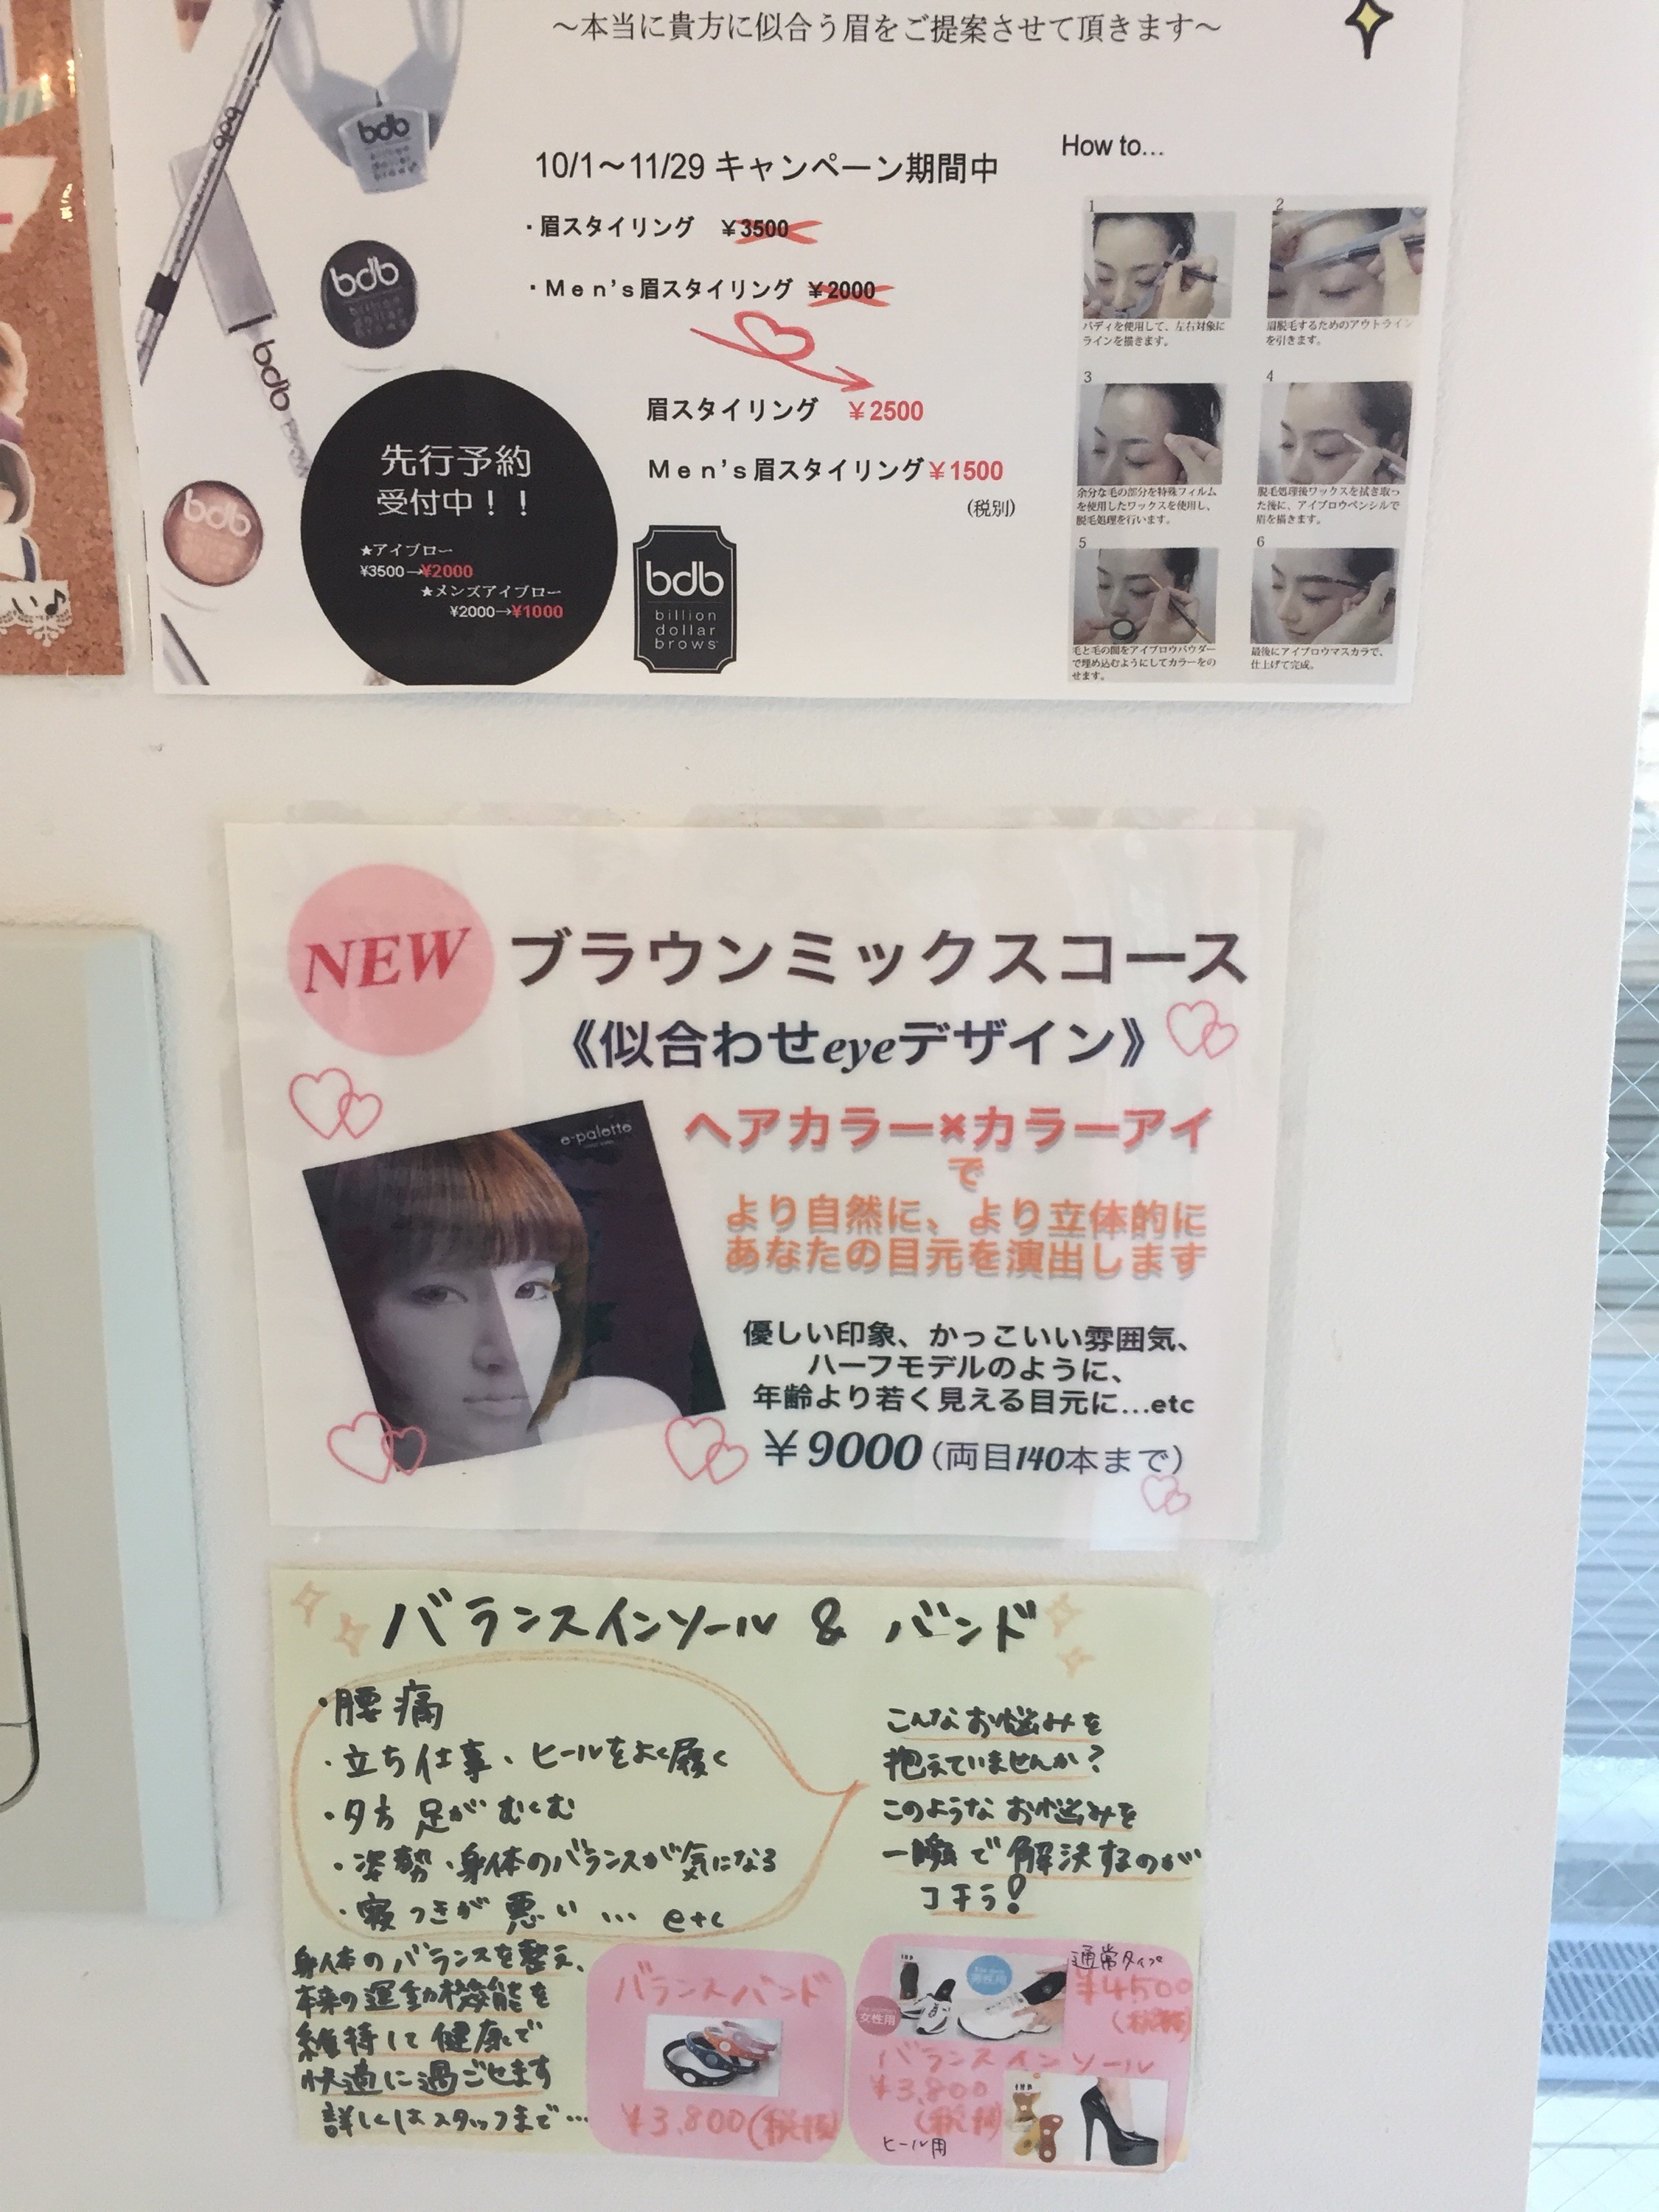 ～本当に貴方に似合う眉をご提案させて頂きます～
bdb
bdb
billion
dollar
brows
10/1～11/29 キャンペーン期間中
・眉スタイリング　￥3500
・Ｍｅｎ’ｓ眉スタイリング ￥2000
眉スタイリング　￥2500
Ｍｅｎ’ｓ眉スタイリング￥1500
(税別)
bdb
bdb
bdb
先行予約
受付中！！
★アイブロー
¥3500→¥2000
★メンズアイブロー
¥2000→¥1000
bdb
billion
dollar
brows
How to…
1
バディを使用して、左右対象に
ラインを描きます。
2
眉脱毛するためのアウトライン
を引きます。
3
余分な毛の部分を特殊フィルム
を使用したワックスを使用し、
脱毛処理を行います。
4
脱毛処理後ワックスを拭き取っ
た後に、アイブロウペンシルで
眉を描きます。
5
毛と毛の間をアイブロウパウダー
で埋め込むようにしてカラーをの
せます。
6
最後にアイブロウマスカラで、
仕上げて完成。
い♪
NEW
ブラウンミックスコース
《似合わせeyeデザイン》
e-palette
ヘアカラー×カラーアイ
で
より自然に、より立体的に
あなたの目元を演出します
優しい印象、かっこいい雰囲気、
ハーフモデルのように、
年齢より若く見える目元に…etc
￥9000（両目140本まで）
バランスインソール & バンド
・腰痛
・立ち仕事・ヒールをよく履く
・夕方 足が むくむ
・姿勢・身体のバランスが気になる
・寝つきが 悪い … etc
こんな お悩みを
抱えていませんか？
このような お悩みを
一瞬で 解決するのが
コチラ！
身体の バランスを整え、
本来の 運動機能を
維持して 健康で
快適に過ごせます
詳しくは スタッフまで…
バランスバンド
¥3,800(税抜)
男性用
女性用
通常タイプ
¥4500
(税抜)
バランスインソール
¥3,800
(税抜)
ヒール用